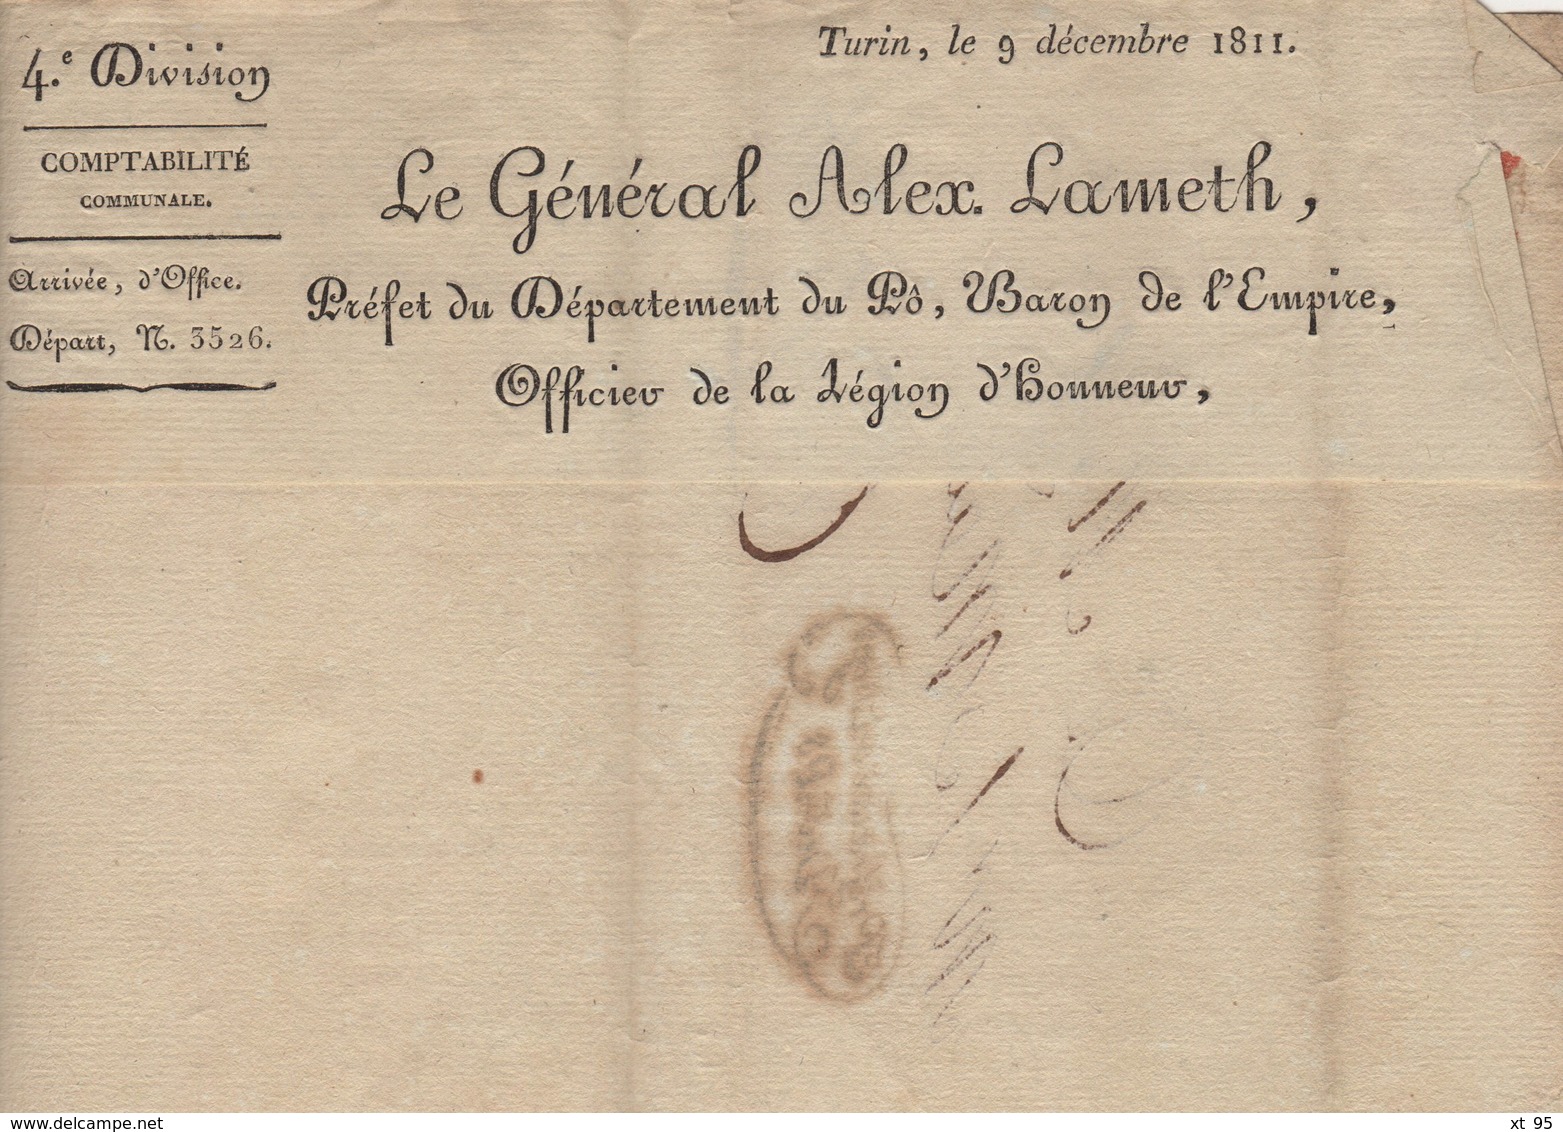 Turin, le 9 décembre 1811.
4.e Division
COMPTABILITÉ
COMMUNALE.
Arrivée, d'Office.
Départ, N. 3526.
Le Général Alex. Lameth,
Préfet du Département du Pô, Baron de l'Empire,
Officier de la Légion d'honneur,
© delcampe.net
xt 95